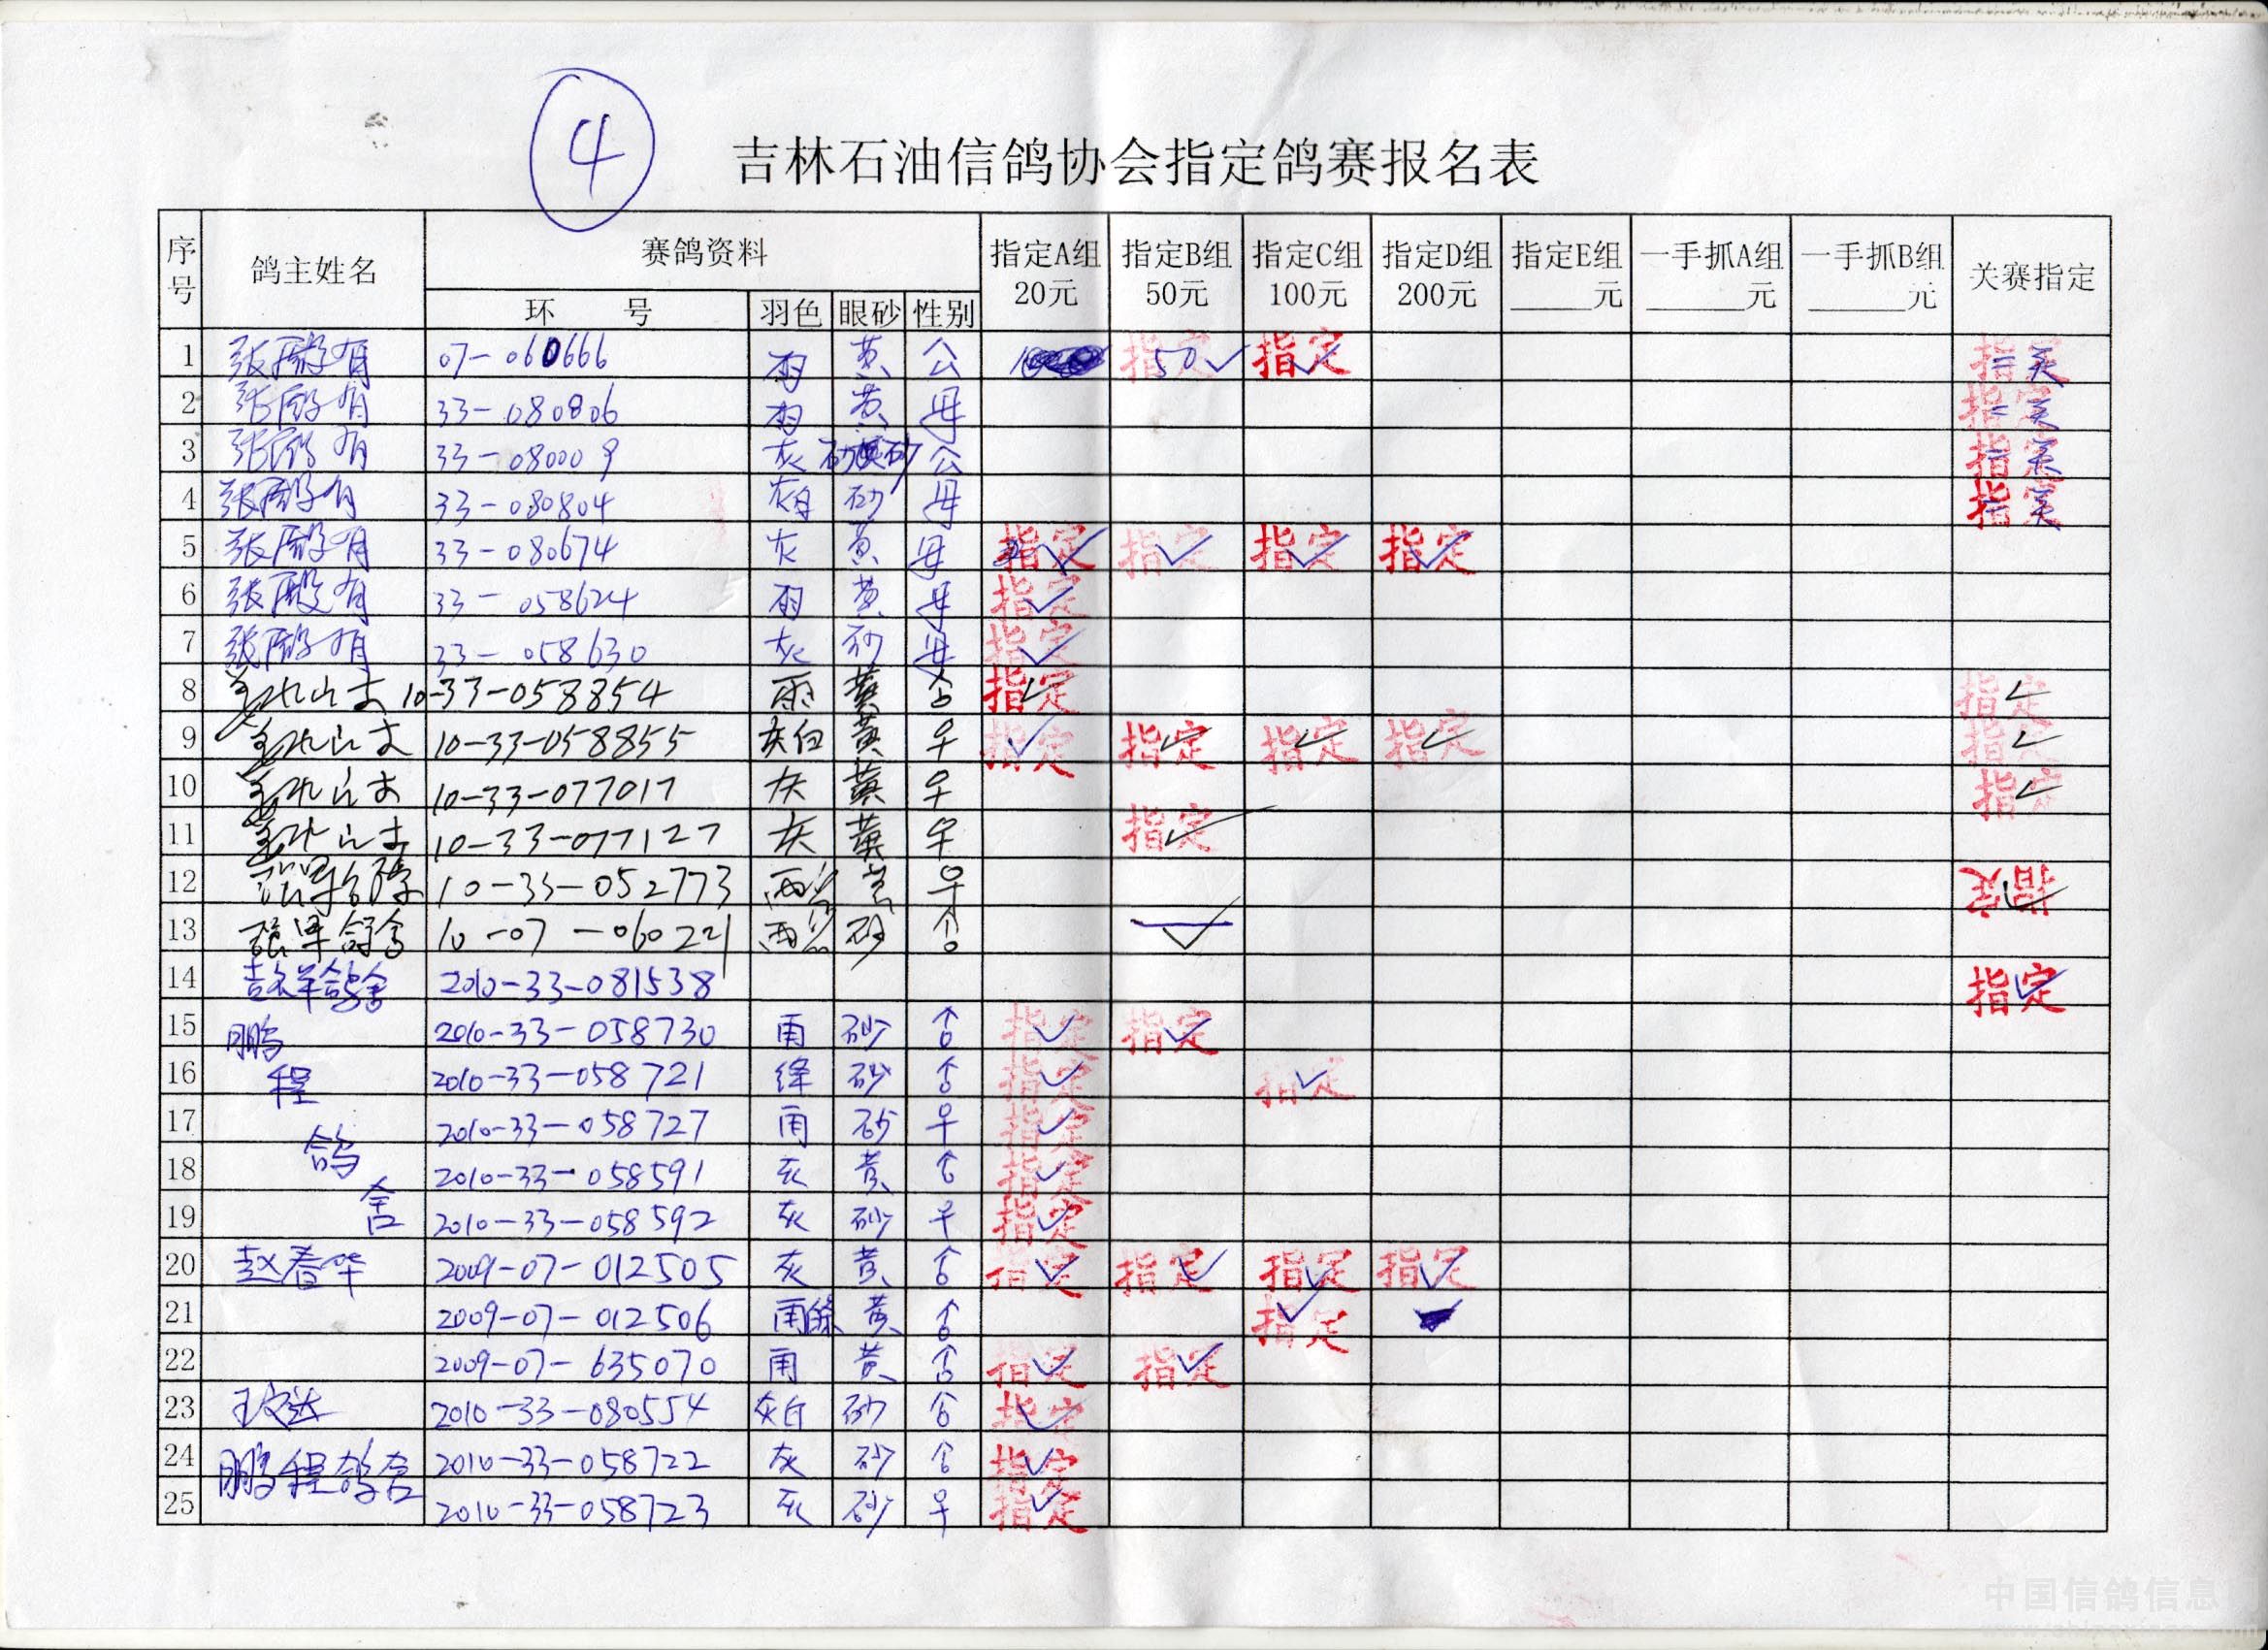 ④
吉林石油信鸽协会指定鸽赛报名表
序号 鸽主姓名 赛鸽资料 指定A组 20元 指定B组 50元 指定C组 100元 指定D组 200元 指定E组 ____元 一手抓A组 ____元 一手抓B组 ____元 关赛指定
环 号 羽色 眼砂 性别
1 07-060666 雨 黄 公 指定 50 ✓ 指定 ✓ 指定 二关
2 33-080806 雨 黄 母 指定 二关
3 33-080009 灰 砂 公 指定 二关
4 33-080804 灰白 砂 母 指定 二关
5 33-080674 灰 黄 母 指定 ✓ 指定 ✓ 指定 ✓ 指定 ✓
6 33-058624 雨 黄 母 指定 ✓
7 33-058630 灰 砂 母 指定 ✓
8 10-33-058854 雨 黄 ♂ 指定 ✓ 指定 ✓
9 10-33-058855 灰白 黄 ♀ 指定 ✓ 指定 ✓ 指定 ✓ 指定 ✓ 指定 ✓
10 10-33-077017 灰 黄 ♀ 指定 ✓
11 10-33-077127 灰 黄 ♀ 指定 ✓
12 10-33-052773 ♀ 指定 ✓
13 10-07-060221 砂 ♂ ✓
14 吉祥鸽舍 2010-33-081538 指定 ✓
15 鹏 2010-33-058730 雨 砂 ♂ 指定 ✓ 指定 ✓
16 程 2010-33-058721 绛 砂 ♂ 指定 ✓ 指定 ✓
17 鸽 2010-33-058727 雨 砂 ♀ 指定 ✓
18 2010-33-058591 灰 黄 ♂ 指定 ✓
19 舍 2010-33-058592 灰 砂 ♀ 指定 ✓
20 赵春华 2009-07-012505 灰 黄 ♂ 指定 ✓ 指定 ✓ 指定 ✓ 指定 ✓
21 2009-07-012506 雨 黄 ♂ 指定 ✓
22 2009-07-635070 雨 黄 ♂ 指定 ✓ 指定 ✓
23 2010-33-080554 灰白 砂 ♂ 指定 ✓
24 鹏程鸽舍 2010-33-058722 灰 砂 ♂ 指定 ✓
25 2010-33-058723 灰 砂 ♀ 指定 ✓
中国信鸽信息